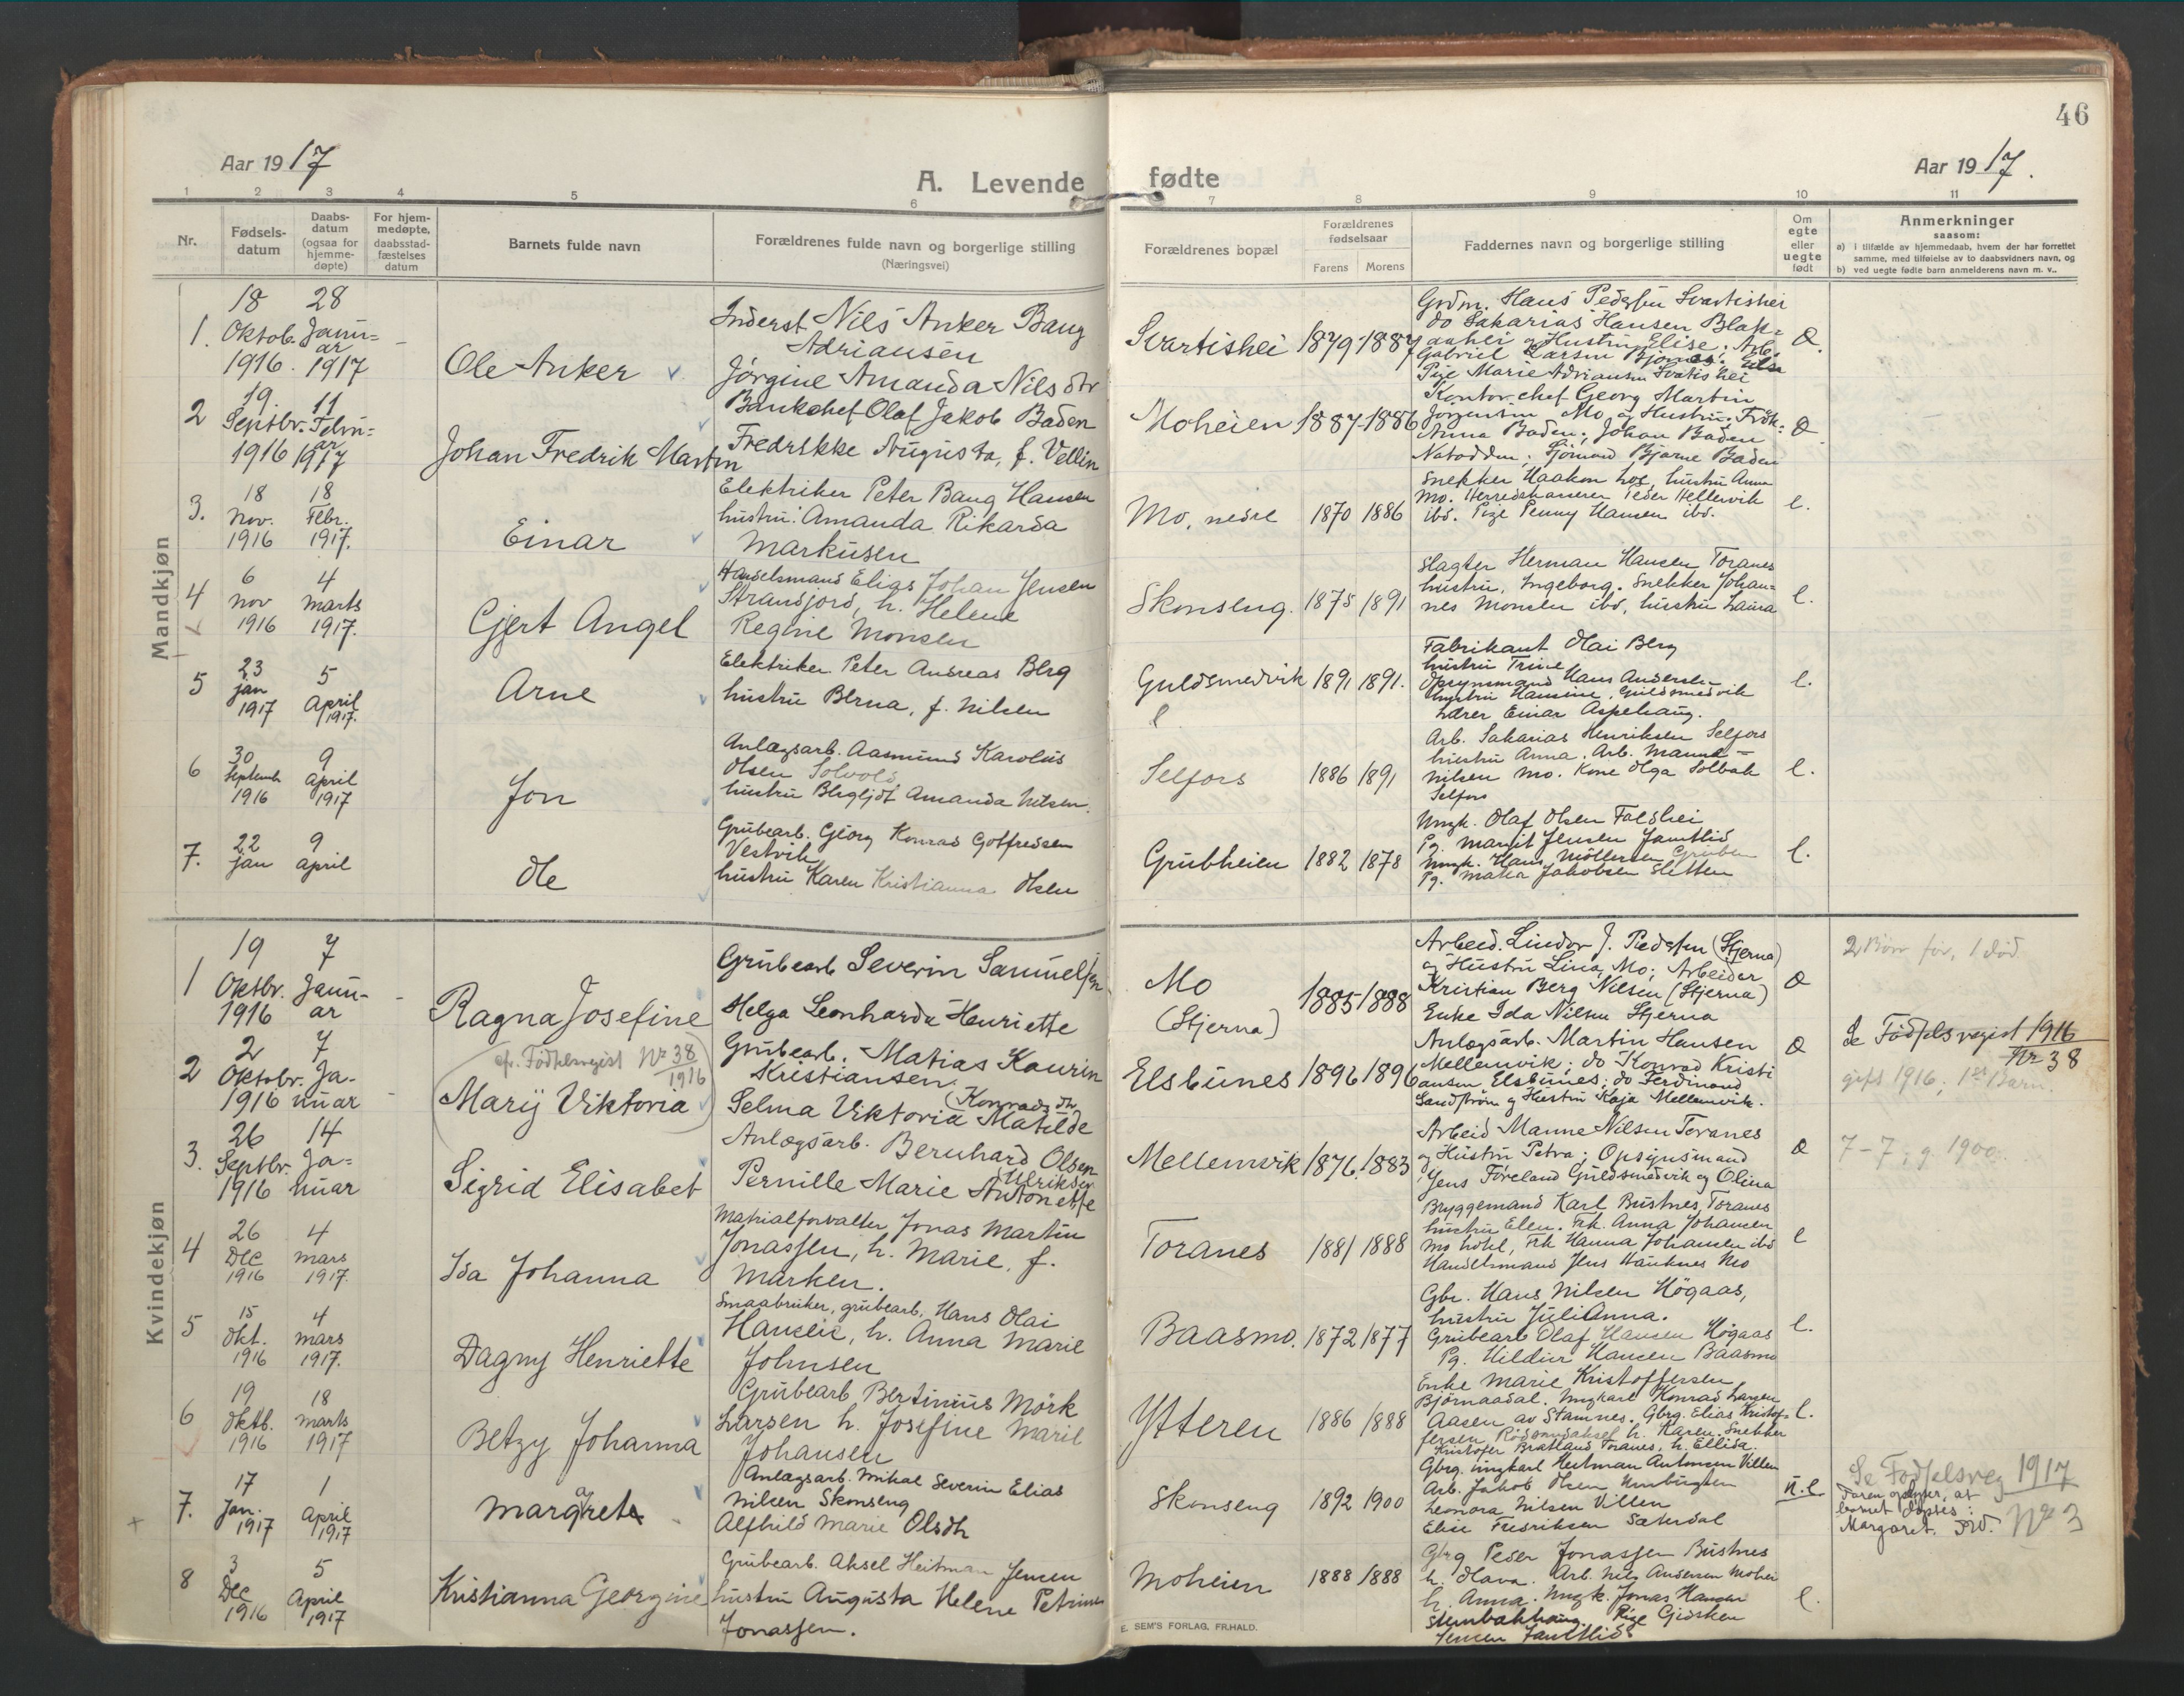 46
Aar 1917
Aar 1917.
A. Levende fødte
1 2 3 4 5 6 7 8 9 10 11
Nr.
Fødsels-
datum
Daabs-
datum
(ogsaa for
hjemme-
døpte)
For hjem-
medøpte,
daabsstad-
fæstelses
datum
Barnets fulde navn
Forældrenes fulde navn og borgerlige stilling
(Næringsvei)
Forældrenes bopæl
Forældrenes
fødselsaar
Farens Morens
Faddernes navn og borgerlige stilling
Om
egte
eller
uegte
født
Anmerkninger
saasom:
a) i tilfælde av hjemmedaab, hvem der har forrettet
samme, med tilføielse av to daabsvidners navn, og
b) ved uegte fødte barn anmelderens navn m. v..
Mandkjøn
1. 18 Oktob. 1916. 28 Janu=ar 1917
Ole Anker
Inderst Nils Anker Baug
Adriansen
Jørgine Amanda Nilsdtr
Svartishei 1879-1887
Grdm. Hans Pedersen Svartishei
do Sakarias Hansen Blak=
aahei og Hustru Elise; Arb.
Gabriel Larsen Bjørnes
Pige Marie Adriansen Svartishei
2 19. Septbr. 1916 11 Febru=ar 1917
Johan Fredrik Martin
Bankchef Olaf Jakob Baden
Fredrikke Augusta, f. Vellin
Moheien 1887-1886
Kontorchef Georg Martin
Jørgensen Mo, og Hustru; Frøk.
Anna Baden; Johan Baden
Notodden; Sjømand Bjarne Baden
3. 18 Nov. 1916 18 Febr. 1917.
Einar
Elektriker Peter Baug Hansen
hustru: Amanda Rikarda
Markusen
Mo, nedre 1870 1886
Snekker Haakon Los, hustru Anna
Mo. Herredskasserer Peder Hellervik
ibd. Pige Penny Hansen ibd.
e.
4 6 nov 1916 4 marts 1917.
Gjert Angel
Handelsmand Elias Johan Jensen
Strandjord, h. Helene
Regine Monsen
Skonseng. 1875 1891
Slagter Herman Hansen Toranes
hustru, Ingeborg. Snekker Johan=
nes Monsen ibd, hustru Laura
e.
5 23 jan 1917 5 April 1917.
Arne
Elektriker Peter Andreas Berg
hustru Berna, f. Nilsen
Guldsmedvik 1891 1891.
Fabrikant Olai Berg
hustru Trine
Opsynsmand Hans Andersen
hustru Hansine, Guldsmedvik
Lærer Einar Aspehaug.
e.
6 30 Septemb 1916 9 april 1917
Jon
Anlægsarb. Aasmund Karolus
Olsen Solvold
hustru Bergljot Amanda Nilsen.
Selfors 1886 1891
Arb. Sakarias Henriksen Selfors
hustru Anna. Arb. Manne
Nilsen Mo. Kone Olga Solbak
Selfors
e.
7. 22 jan 9 april
Ole
Grubearb. Georg Konrad Gotfredsen
Vestvik
hustru Karen Kristianna Olsen
Grubheien 1882 1878
Ungk. Olaf Olsen Falshei
Pg. Margit Jensen Jamtlid
Ungk. Hans Möllersen Gruben
Pg. Jakobsen Sletten
e.
Kvindekjøn
1 19 Oktbr. 1916 7 Janu-ar
Ragna Josefine
Grubearb Severin Samuelsen
Helga Leonharda Henriette
Mo
(Stjerna) 1885-1888
Arbeid. Lindor J. Pedersen (Stjerna)
og Hustru Lina, Mo; Arbeider
Kristian Berg Nilsen (Stjerna)
Enke Ida Nilsen Stjerna
2 Børn før, 1 død
2 2 Oktobr. 1916 7 Ja-nuar
cfr. Fødselsregist Nr 38
1916
(Marij Viktoria)
Grubearb. Matias Kaurin
Kristiansen
(Konradsdtr
Selma Viktoria Matilde
Elsbunes 1896 1896
Anlægsarb. Martin Hansen
Mellemvik; do Konrad Kristi
ansen Elsbunes; do Ferdinand
Sandstrøm og Hustru Kaja Mellemvik.
Se Fødselsregist 1916
Nr 38
gift 1916; 1ste Barn.
3. 26 Septbr. 1916 14 Ja=nuar
Sigrid Elisabet
Anlægsarb. Bernhard Olsen
(Ulriksen
Pernille Marie Antonette
Mellemvik 1876. 1883
Arbeid Manne Nilsen Toranes
og Hustru Petra; Opsynsmand
Jens Føreland Guldsmedvik og Olina
7-7; g. 1900.
4 26 Dec 1916 4 mars 1917.
Ida Johanna
Matrialforvalter Jonas Martin
Jonassen, h. Marie, f.
Marken.
Toranes 1881 1888
Bryggemand Karl Bustnes, Toranes
hustru Elen. Frk. Anna Johansen
Mo hotel, Frk Hanna Johansen ibd
Handelsmand Jens Hauknes Mo
e
5 15 Okt. 1916 4 mars 1917.
Dagny Henriette
Smaabruker, grubearb, Hans Olai
Hansen, h. Anna Marie
Johnsen
Baasmo. 1872 1877
Gbr. Hans Nilsen Högaas,
hustru Julianna.
Grubearb Olaf Hansen Högaas
Pg. Hildur Hansen Baasmo
e.
6 19 Oktb. 1916 18 marts 1917
Betzy Johanna
Grubearb Bertinius Mörk
Larsen h. Josefine Maril
Johansen
Ytteren 1886 1888
Enke Marie Kristoffersen
Björnaadal. Ungkarl Konrad Larsen
Aasen av Stamnes. Gbrg. Elias Kristof=
fersen h. Karen. Snekker
Kristofer Bratland Toranes, h. Ellida.
e.
7. 17 Jan. 1917 1 April 1917
Margaret
Anlægsarb. Mikal Severin Elias
Nilsen Skonseng
Alfhild Marie Olsdtr
Skonseng 1892 1900
Gbrg. ungkarl Heitman Antonsen Villen
Arb. Jakob Olsen
Leonora Nilsen Villen
Elise Fredriksen Sæterdal
u.e.
Se Fødselsreg 1917
Nr 3
Faren opgiver, at
barnet døptes:
Margaret.
8 3 Dec 1916 5 April 1917
Kristianna Georgine
Grubearb. Aksel Heitman Jensen
hustru Augusta Helene Petrine
Jonassen.
Moheien 1888 1888
Gbrg Peder Jonassen Bustnes
h. Olava. Arb. Nils Andersen Mohei
h. Anna. Ungk. Jonas Hansen
Stenbakhaug. Pige Gjørken
Jensen Jamtlid
e.
E. SEM'S FORLAG, FR.HALD.